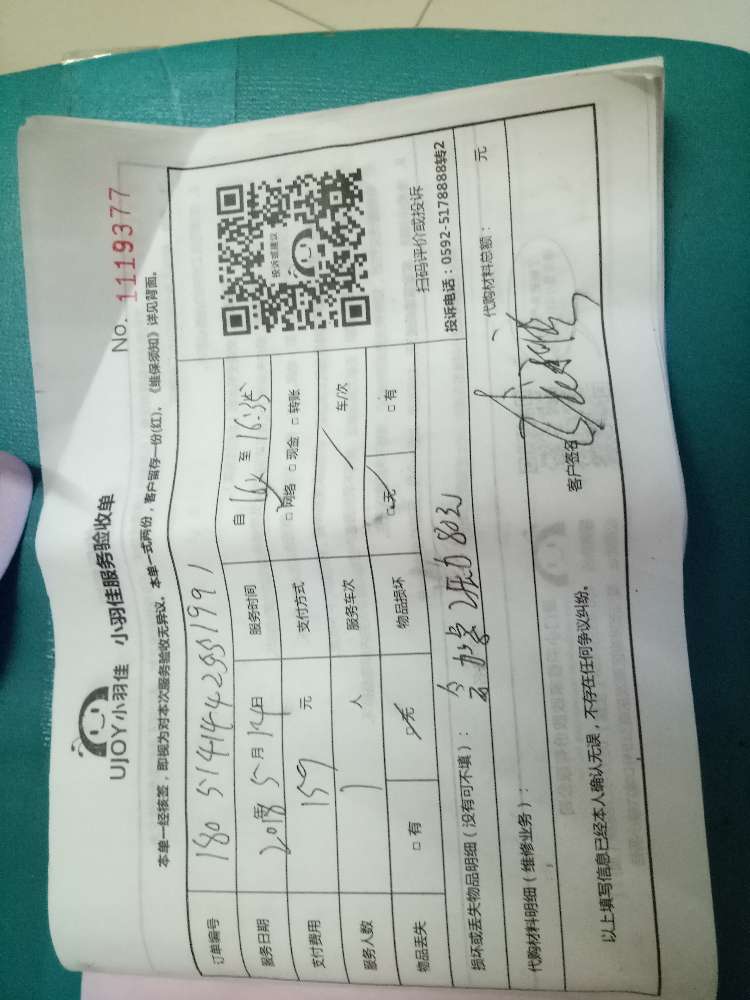 UJOY小羽佳 小羽佳服务验收单
No. 1119377
本单一经核签，即视为对本次服务验收无异议。本单一式两份，客户留存一份(红)。《维保须知》详见背面。
订单编号 180514144295 1991
服务日期 2018年5月14日 服务时间 自 至 16:35
支付费用 159 元 支付方式 □网络 □现金 □转账
服务人数 1 人 服务车次 / 车/次
物品丢失 □有 □无 物品损坏 □无 □有
投诉或建议
扫码评价或投诉
投诉电话：0592-5178888转2
损坏或丢失物品明细（没有可不填）：
代购材料明细（维修业务）： 代购材料总额： 元
以上填写信息已经本人确认无误，不存在任何争议纠纷。 客户签名